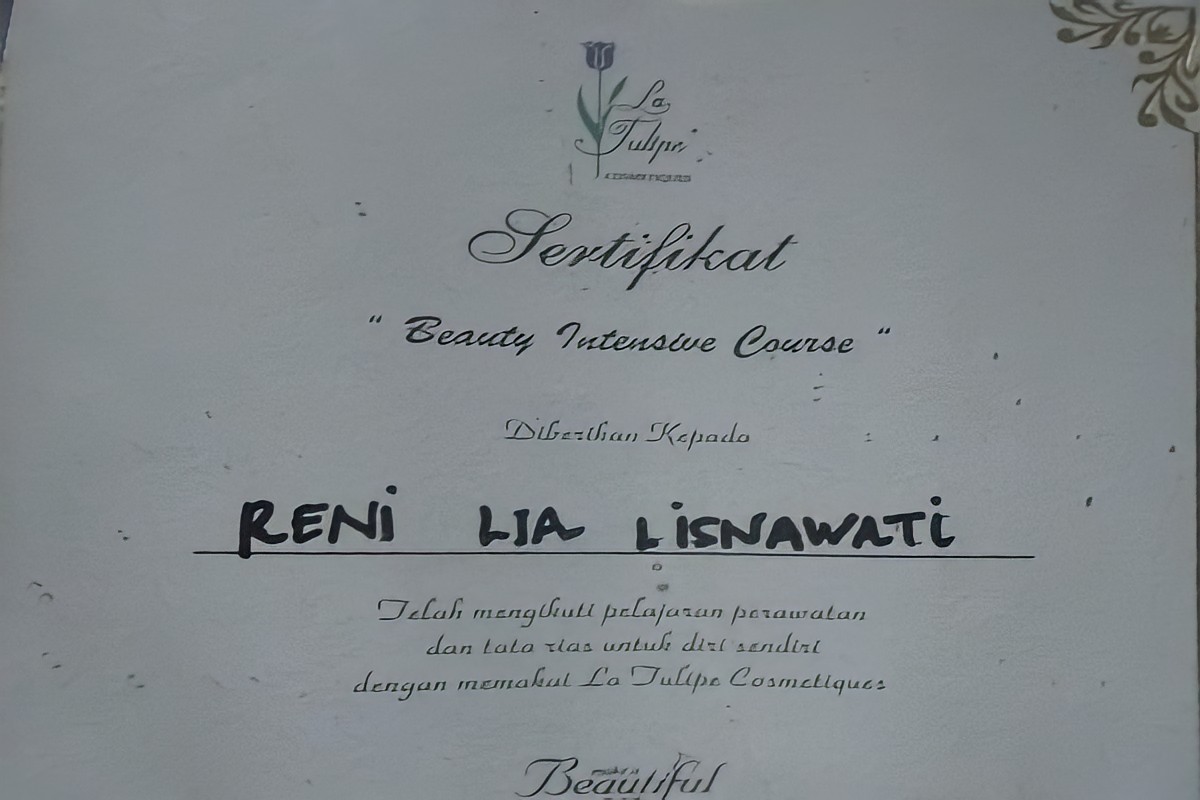 La
Tulipe
COSMETIQUES
Sertifikat
" Beauty Intensive Course "
Diberikan Kepada
RENI LIA LISNAWATI
Telah mengikuti pelajaran perawatan
dan tata rias untuk diri sendiri
dengan memakai La Tulipe Cosmetiques
Beautiful